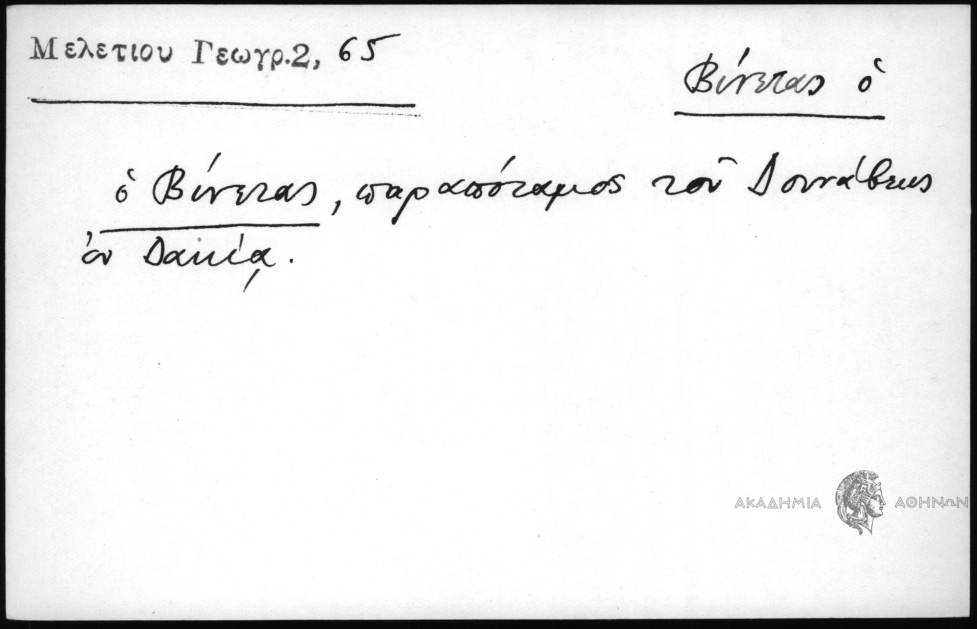 Μελετιου Γεωγρ.2, 65
Βίνετας ὁ
ὁ Βίνετας, παραπόταμος τοῦ Δουνάβεως
ἐν Δακίᾳ.
ΑΚΑΔΗΜΙΑ ΑΘΗΝΩΝ